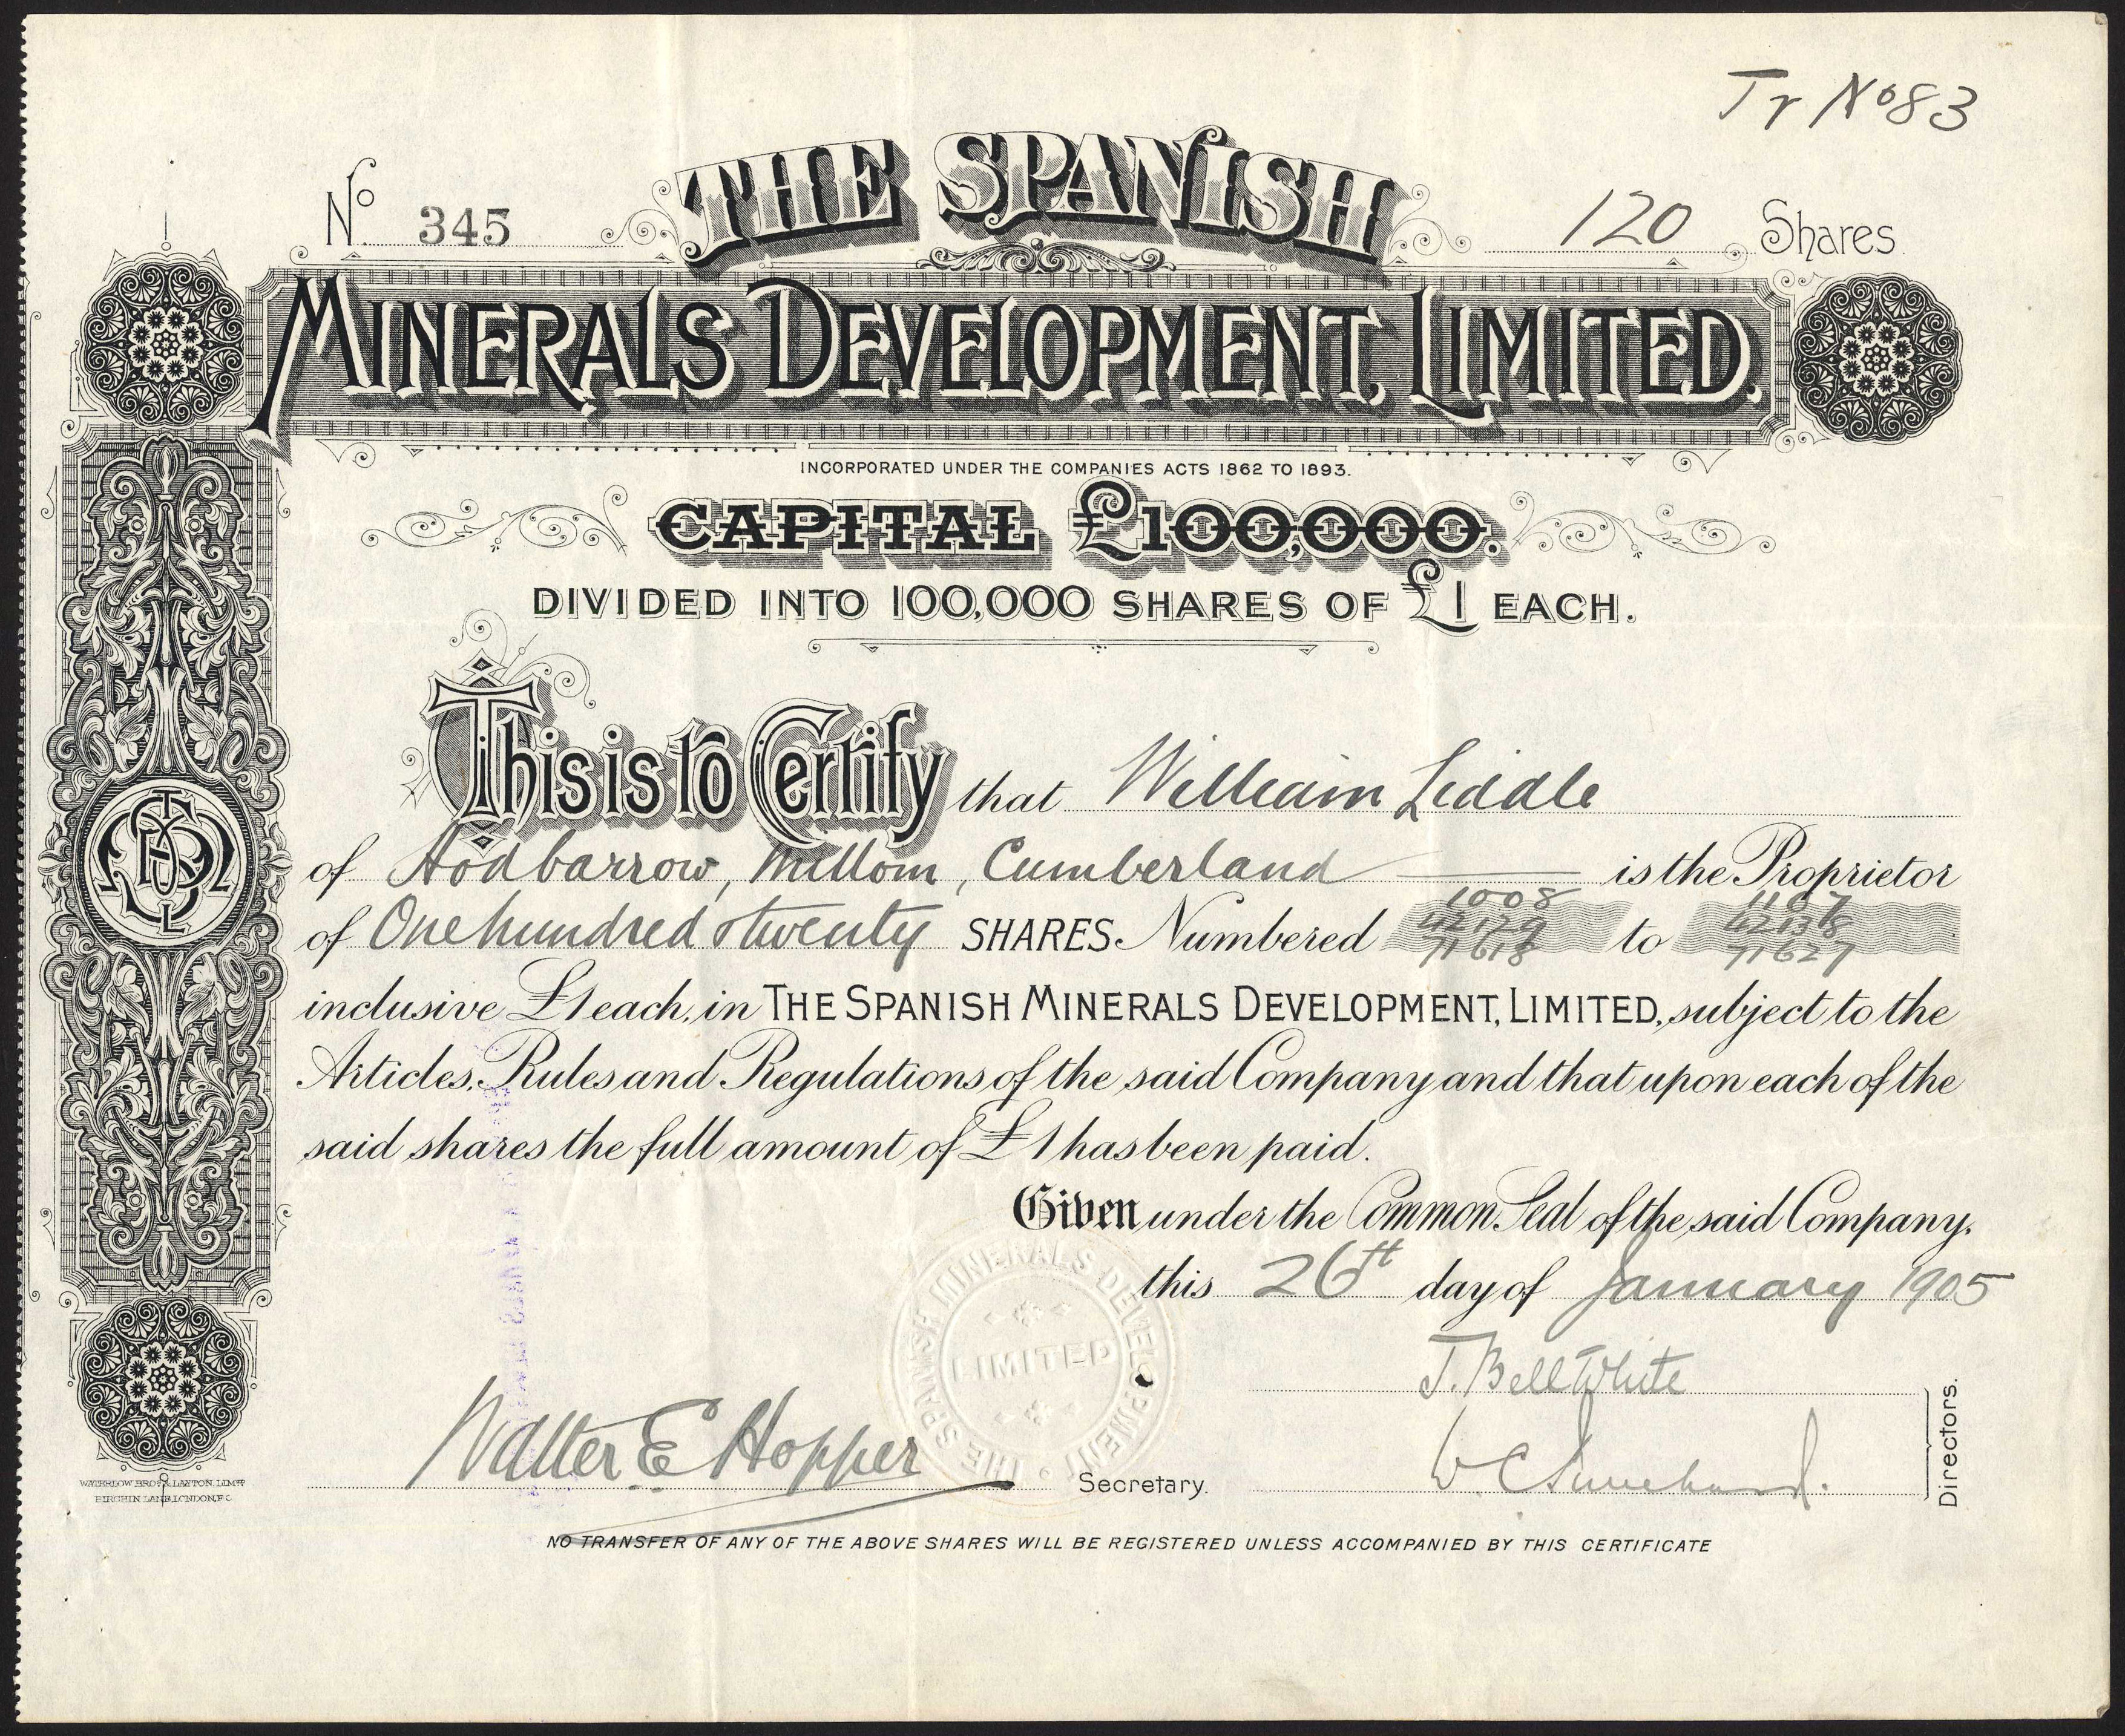 Tr No 83
No 345
120 Shares
THE SPANISH
MINERALS DEVELOPMENT, LIMITED.
INCORPORATED UNDER THE COMPANIES ACTS 1862 TO 1893.
CAPITAL £100,000.
DIVIDED INTO 100,000 SHARES OF £1 EACH.
This is to Certify that William Liddle
of Hodbarrow, Millom, Cumberland is the Proprietor
1008 1107
of One hundred & twenty SHARES. Numbered 42129 to 42138
71618 71627
inclusive £1 each, in THE SPANISH MINERALS DEVELOPMENT, LIMITED, subject to the
Articles, Rules and Regulations of the said Company and that upon each of the
said shares the full amount of £1 has been paid.
Given under the Common Seal of the said Company,
this 26th day of January 1905
THE SPANISH MINERALS DEVELOPMENT
LIMITED
J. Bell White
Walter E Hopper Secretary.
W. C.
Directors.
WATERLOW BROS & LAYTON, LIMTD
BIRCHIN LANE, LONDON, E.C.
NO TRANSFER OF ANY OF THE ABOVE SHARES WILL BE REGISTERED UNLESS ACCOMPANIED BY THIS CERTIFICATE